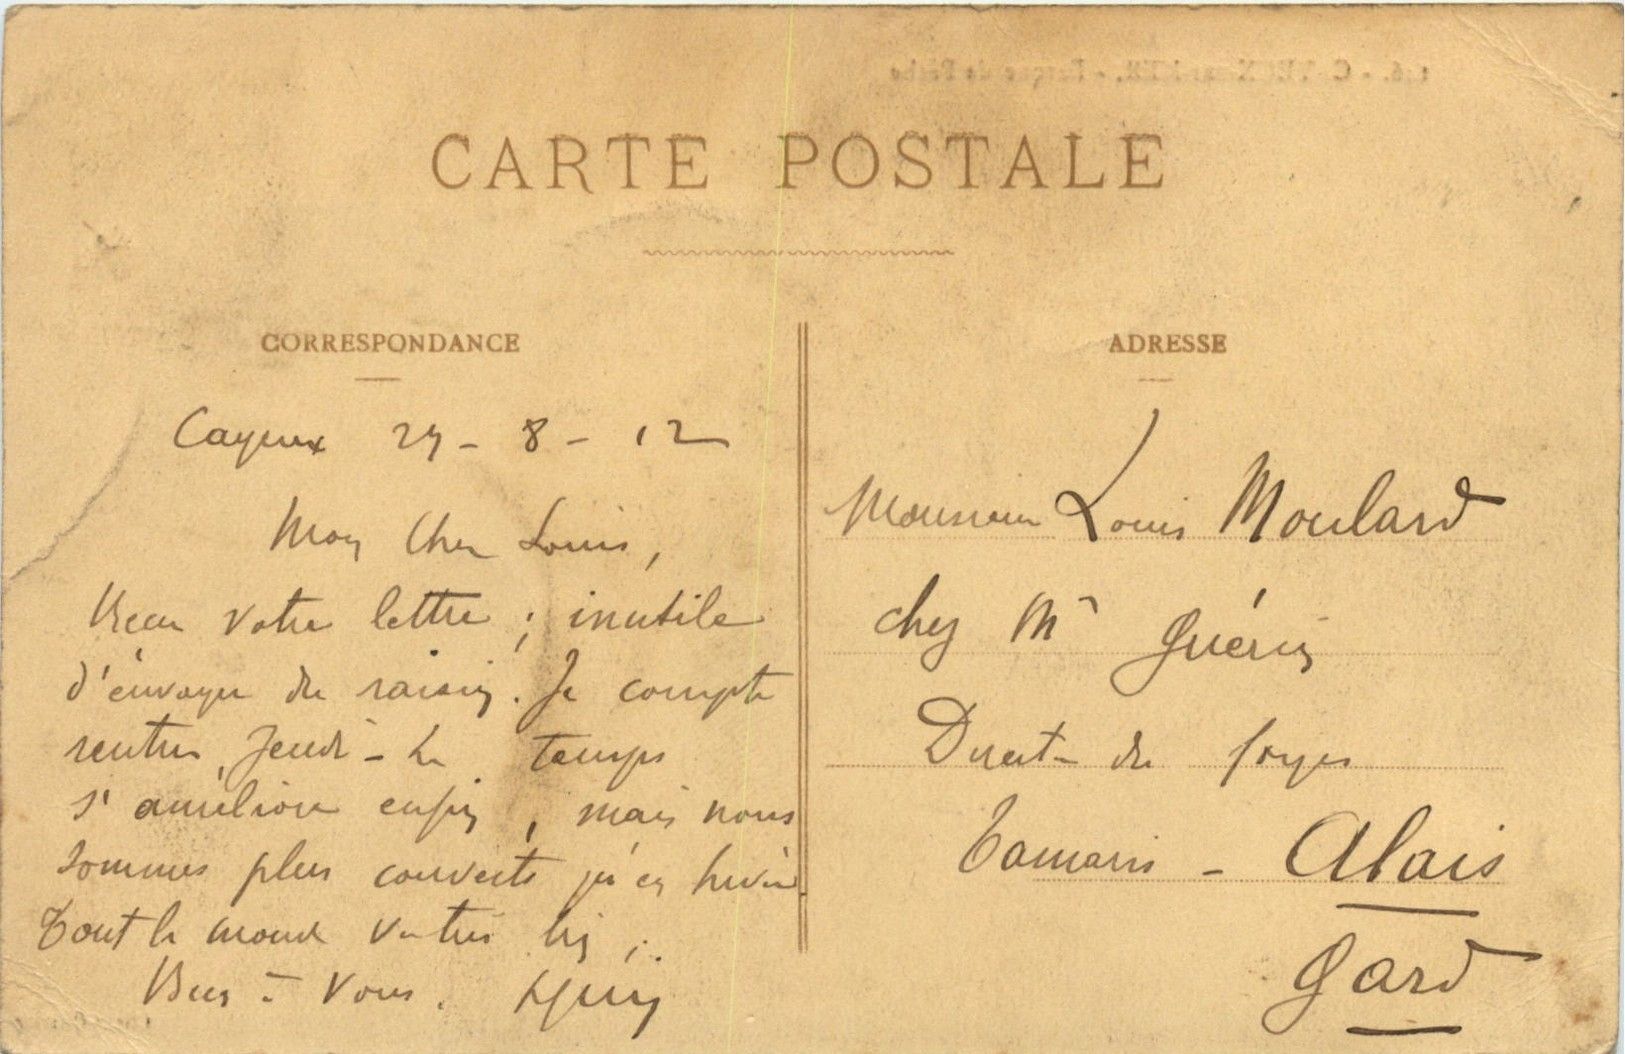 CARTE POSTALE
CORRESPONDANCE
Cayeux 27 - 8 - 12
Mon Cher Louis,
Recu votre lettre ; inutile
d'envoyer du raisin. Je compte
rentrer Jeudi - Le temps
s'améliore enfin, mais nous
sommes plus couverts qu'en hiver.
Tout le monde va très bien.
Bien à Vous.
ADRESSE
Monsieur Louis Moulard
chez Mr Guérin
Direct- des forges
Tamaris - Alais
Gard